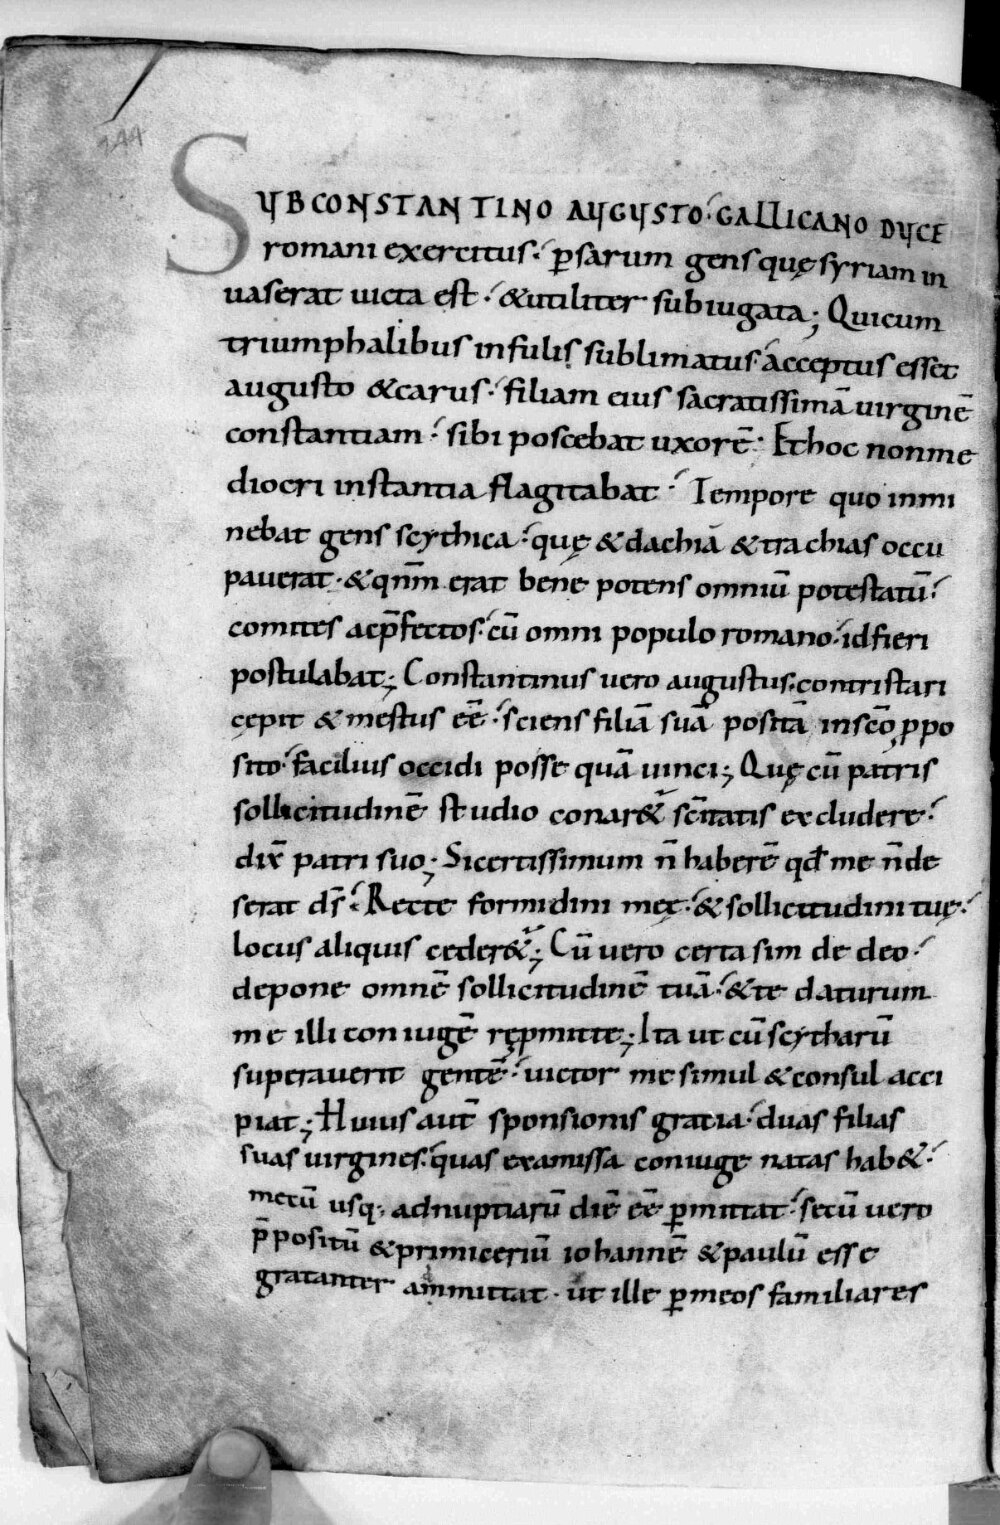 144
SUB CONSTANTINO AUGUSTO · GALLICANO DUCE
romani exercitus · ꝑsarum gens quę syriam in
vaserat victa est · & utiliter subiugata; Qui cum
triumphalibus infulis sublimatus acceptus esset
augusto & carus · filiam eius sacratissimā virginē
constantiam · sibi poscebat uxorē · Et hoc non me
diocri instantia flagitabat · Tempore quo inmi
nebat gens scythica · quę & dachiā & trachias occu
paverat · & qnm̄ erat bene potens omniū potestatū ·
comites ac p̄fectos · cū omni populo romano · id fieri
postulabat; Constantinus vero augustus · contristari
cępit & mestus eē · sciens filiā suā positā in sc̄o ꝓpo
sito · facilius occidi posse quā vinci; Quę cū patris
sollicitudinē studio conar& sc̄itatis excludere ·
dix̄ patri suo; Si certissimum n̄ haberē qd̄ me n̄ de
serat ds̄ · Recte formidini meę · & sollicitudini tuę ·
locus aliquis ceder&; Cū vero certa sim de deo ·
depone omnē sollicitudinē tuā · & te daturum
me illi coniugē ręꝓmitte; Ita ut cū scytharū
superaverit gentē · victor me simul & consul acci
piat; Huius aut̄ sponsionis gratia · duas filias
suas virgines · quas ex amissa coniuge natas hab& ·
mecū usq; ad nuptiarū diē eē ꝑmittat · secū vero
p̄positū & primiceriū iohannē & paulū esse
gratanter ammittat · ut ille ꝑ meos familiares